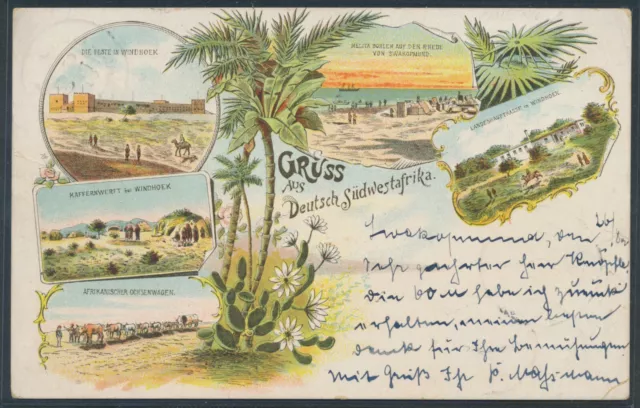 DIE FESTE IN WINDHOEK
AUF DER RHEDE
VON SWAKOPMUND.
IN WINDHOEK
KAFFERNWERFT BEI WINDHOEK
AFRIKANISCHER OCHSENWAGEN.
GRUSS
AUS
Deutsch Südwestafrika.
Swakopmund, den 20
Sehr geehrter Herr
Die 60 M habe ich zurück
erhalten, meinen besten
Dank für Ihre Bemühungen
Mit Gruß Ihr